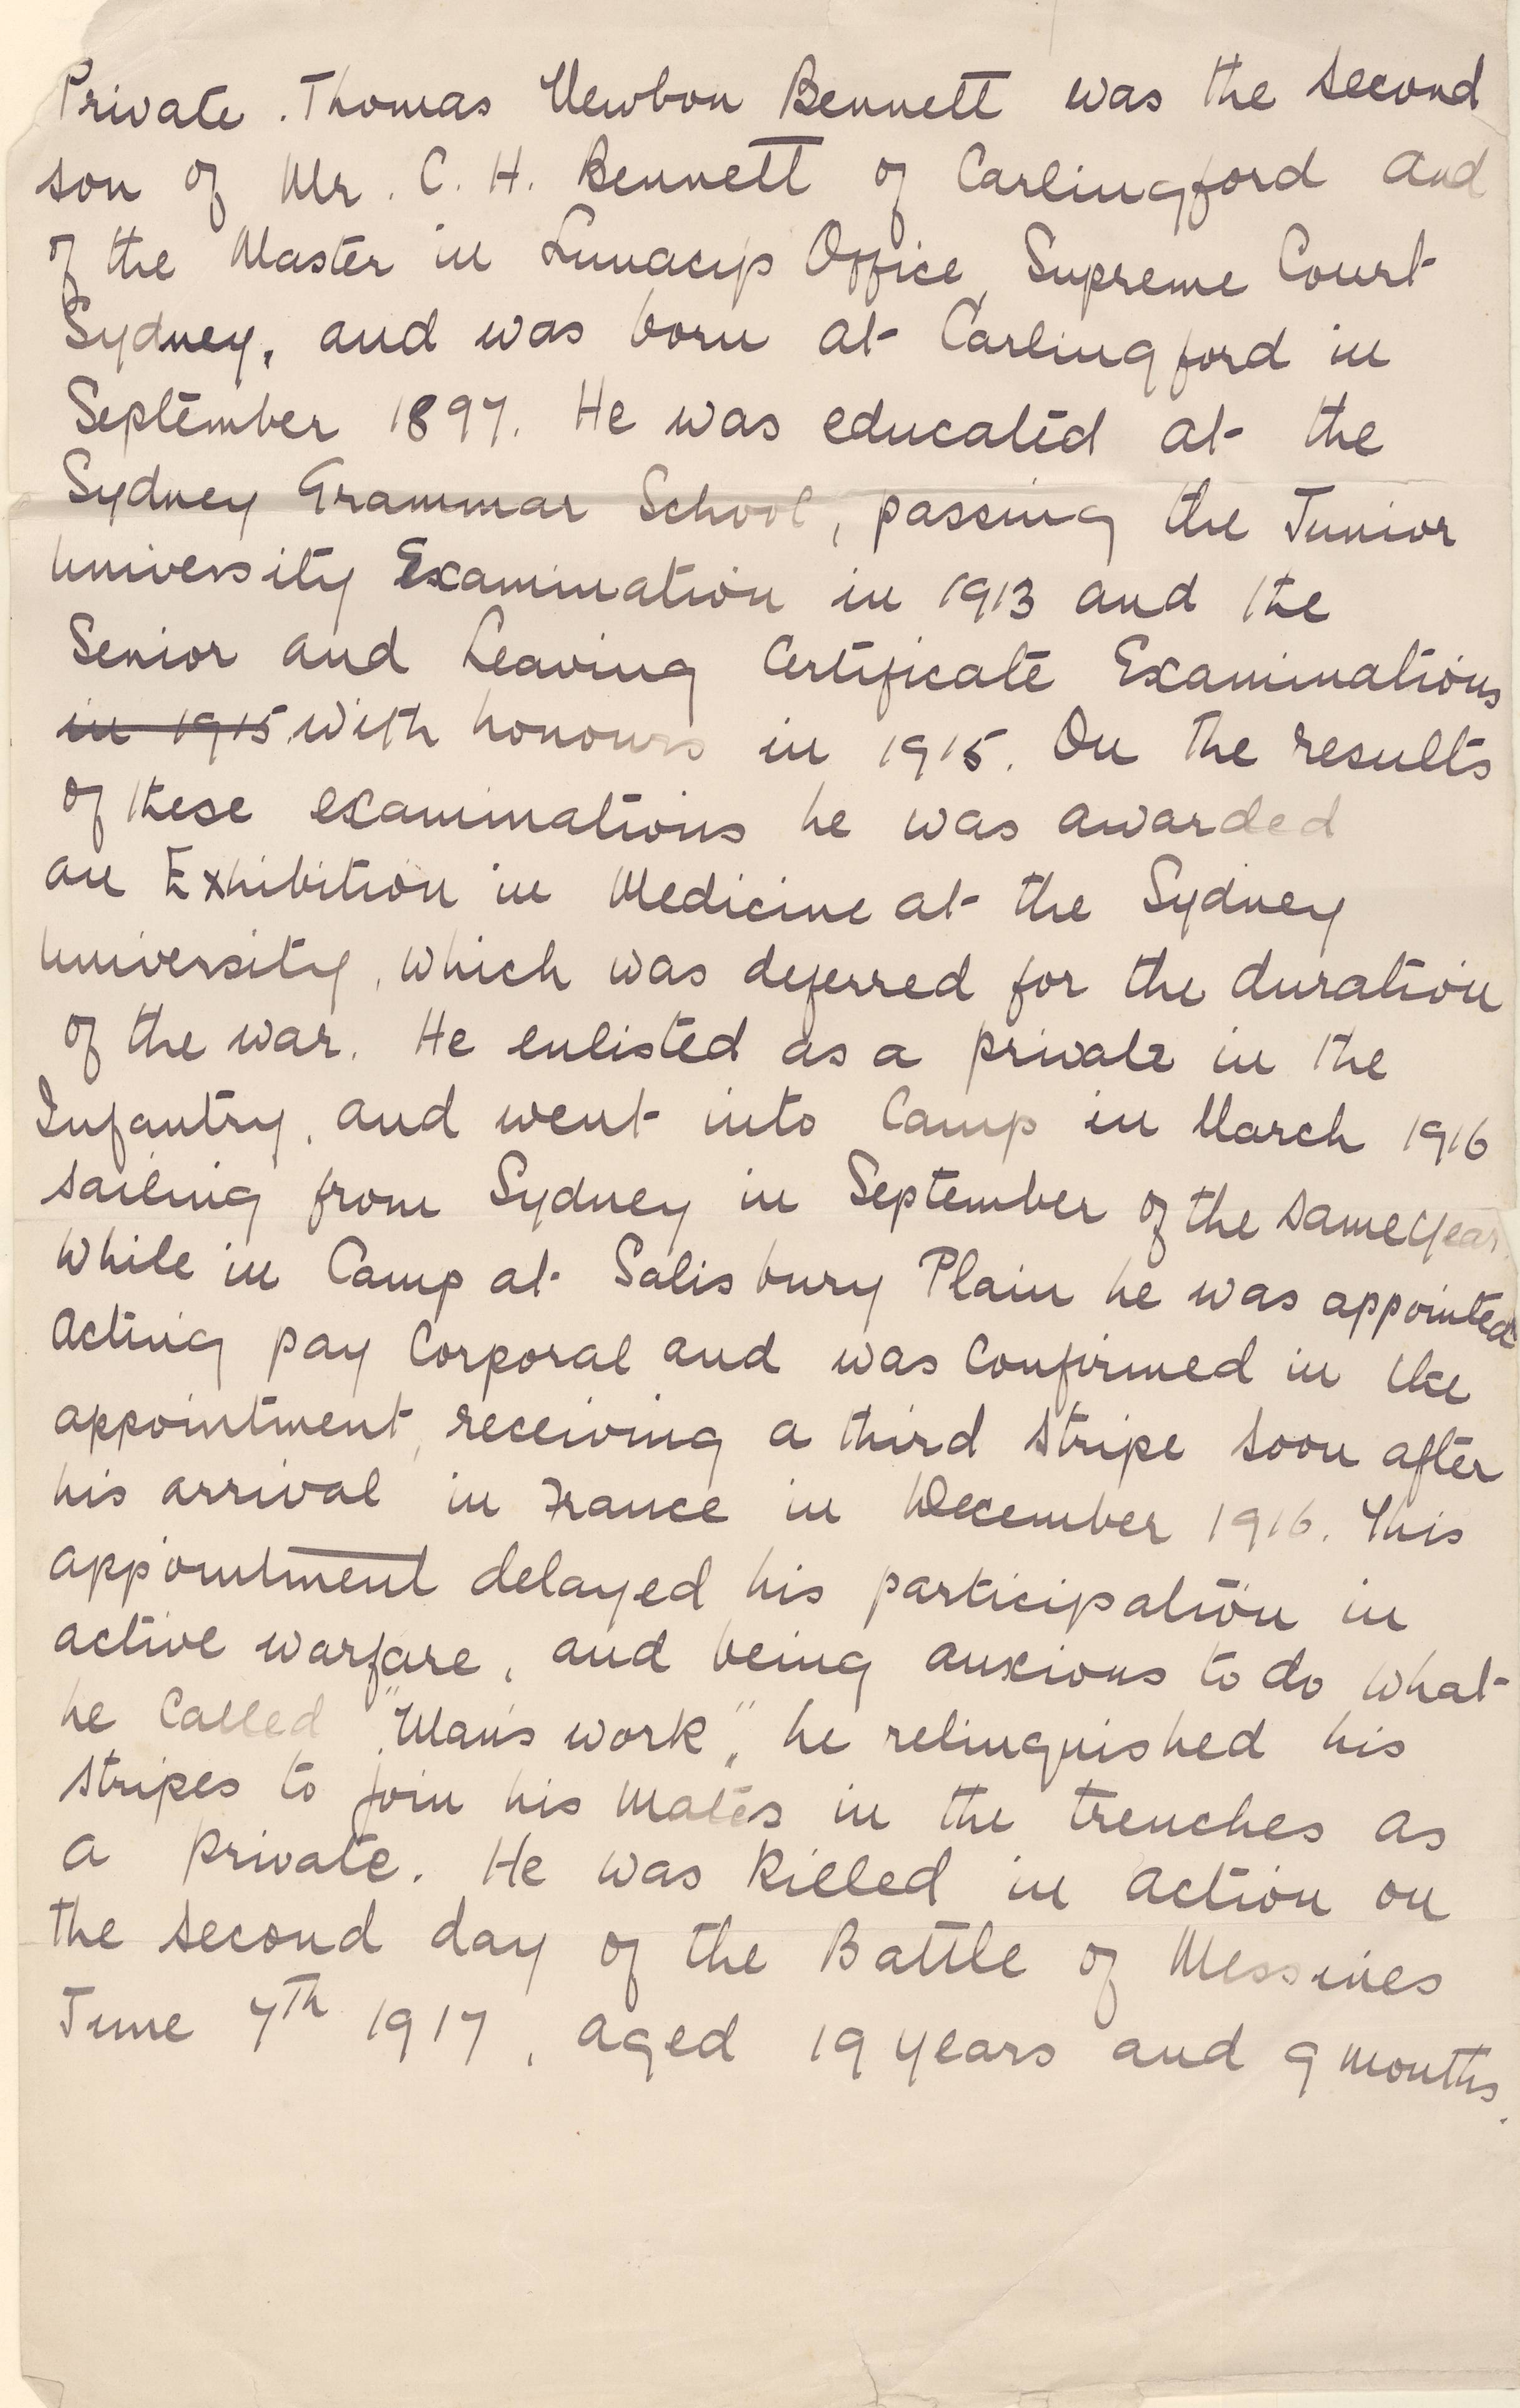 Private. Thomas Newbon Bennett was the second
son of Mr. C. H. Bennett of Carlingford and
of the Master in Lunacy's Office, Supreme Court
Sydney, and was born at Carlingford in
September 1897. He was educated at the
Sydney Grammar School, passing the Junior
University Examination in 1913 and the
Senior and Leaving Certificate Examinations
in 1915 with honours in 1915. On the results
of these examinations he was awarded
an Exhibition in Medicine at the Sydney
University, which was deferred for the duration
of the war. He enlisted as a private in the
Infantry, and went into Camp in March 1916
sailing from Sydney in September of the same year.
While in Camp at Salisbury Plain he was appointed
Acting pay Corporal and was confirmed in the
appointment, receiving a third stripe soon after
his arrival in France in December 1916. This
appointment delayed his participation in
active warfare, and being anxious to do what
he called "Man's work", he relinquished his
stripes to join his mates in the trenches as
a private. He was killed in action on
the second day of the Battle of Messines
June 7th 1917, aged 19 years and 9 months.